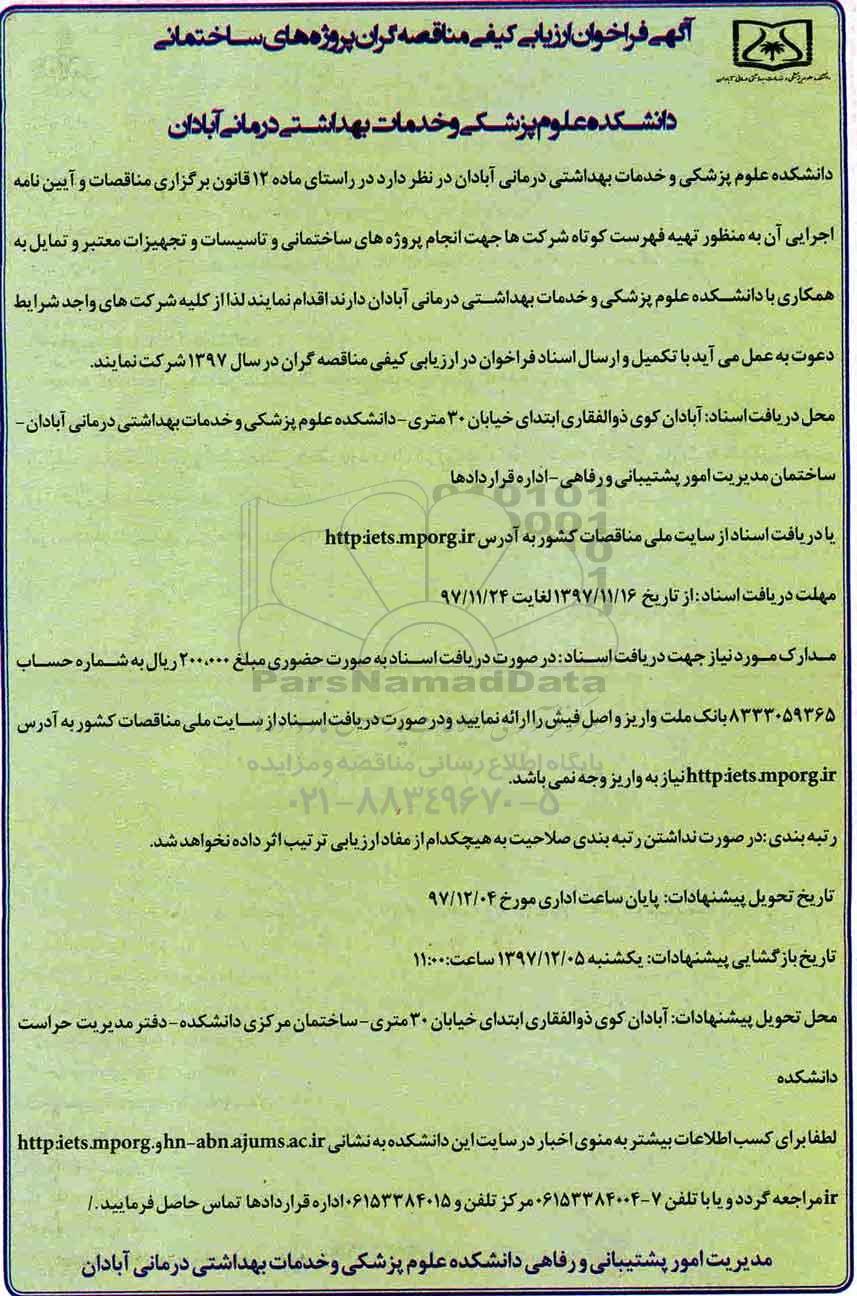 آگهی فراخوان ارزیابی کیفی مناقصه گران پروژه های ساختمانی
دانشکده علوم پزشکی و خدمات بهداشتی درمانی آبادان
دانشکده علوم پزشکی و خدمات بهداشتی درمانی آبادان در نظر دارد در راستای ماده ۱۲ قانون برگزاری مناقصات و آیین نامه
اجرایی آن به منظور تهیه فهرست کوتاه شرکت ها جهت انجام پروژه های ساختمانی و تاسیسات و تجهیزات معتبر و تمایل به
همکاری با دانشکده علوم پزشکی و خدمات بهداشتی درمانی آبادان دارند اقدام نمایند لذا از کلیه شرکت های واجد شرایط
دعوت به عمل می آید با تکمیل و ارسال اسناد فراخوان در ارزیابی کیفی مناقصه گران در سال ۱۳۹۷ شرکت نمایند.
محل دریافت اسناد: آبادان کوی ذوالفقاری ابتدای خیابان ۳۰ متری - دانشکده علوم پزشکی و خدمات بهداشتی درمانی آبادان -
ساختمان مدیریت امور پشتیبانی و رفاهی - اداره قراردادها
یا دریافت اسناد از سایت ملی مناقصات کشور به آدرس http:iets.mporg.ir
مهلت دریافت اسناد: از تاریخ ۱۳۹۷/۱۱/۱۶ لغایت ۹۷/۱۱/۲۴
مدارک مورد نیاز جهت دریافت اسناد: در صورت دریافت اسناد به صورت حضوری مبلغ ۲۰۰,۰۰۰ ریال به شماره حساب
ParsNamadData
۸۳۳۳۰۵۹۳۶۵ بانک ملت واریز و اصل فیش را ارائه نمایید ودر صورت دریافت اسناد از سایت ملی مناقصات کشور به آدرس
پایگاه اطلاع رسانی مناقصه و مزایده
http:iets.mporg.ir نیاز به واریز وجه نمی باشد.
۰۲۱-۸۸۳۴۹۶۷۰-۵
رتبه بندی: در صورت نداشتن رتبه بندی صلاحیت به هیچکدام از مفاد ارزیابی ترتیب اثر داده نخواهد شد.
تاریخ تحویل پیشنهادات: پایان ساعت اداری مورخ ۹۷/۱۲/۰۴
تاریخ بازگشایی پیشنهادات: یکشنبه ۱۳۹۷/۱۲/۰۵ ساعت: ۱۱:۰۰
محل تحویل پیشنهادات: آبادان کوی ذوالفقاری ابتدای خیابان ۳۰ متری - ساختمان مرکزی دانشکده - دفتر مدیریت حراست
دانشکده
لطفا برای کسب اطلاعات بیشتر به منوی اخبار در سایت این دانشکده به نشانی hn-abn.ajums.ac.ir و http:iets.mporg.
ir مراجعه گردد و یا با تلفن ۷-۰۶۱۵۳۳۸۴۰۰۴ مرکز تلفن و ۰۶۱۵۳۳۸۴۰۱۵ اداره قراردادها تماس حاصل فرمایید./
مدیریت امور پشتیبانی و رفاهی دانشکده علوم پزشکی و خدمات بهداشتی درمانی آبادان